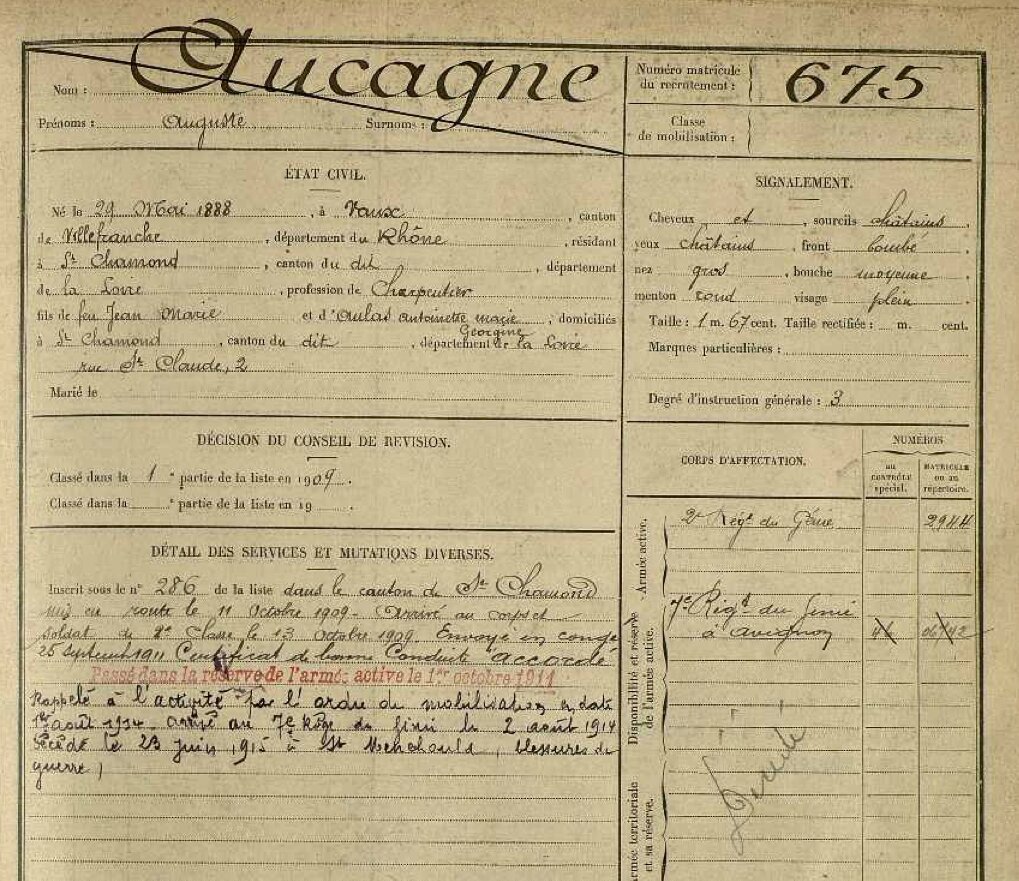 Nom : Aucagne
Prénoms : Auguste Surnoms :
Numéro matricule du recrutement : 675
Classe de mobilisation :
ÉTAT CIVIL.
Né le 29 Mai 1888, à Vaux, canton
de Villefranche, département du Rhône, résidant
à St Chamond, canton du dit, département
de la Loire, profession de Charpentier
fils de feu Jean Marie et d'Aulas antoinette marie Georgine, domiciliés
à St Chamond, canton du dit, département de la Loire
rue St Claude, 2
Marié le
DÉCISION DU CONSEIL DE REVISION.
Classé dans la 1e partie de la liste en 1909.
Classé dans la e partie de la liste en 19 .
DÉTAIL DES SERVICES ET MUTATIONS DIVERSES.
Inscrit sous le n° 286 de la liste dans le canton de St Chamond
mis en route le 11 Octobre 1909 - Arrivé au corps et
soldat de 2e classe le 13 Octobre 1909 Envoyé en congé
25 Septembre 1911 Certificat de bonne Conduite "accordé
Passé dans la réserve de l'armée active le 1er octobre 1911
Rappelé à l'activité par l'ordre de mobilisation en date
1er août 1914 arrivé au 7e Rég du Génie le 2 août 1914
Décédé le 23 juin 1915 à Ste Menehould, blessures de
guerre,
SIGNALEMENT.
Cheveux et sourcils châtains.
yeux châtains, front bombé.
nez gros, bouche moyenne
menton rond visage plein.
Taille : 1 m. 67 cent. Taille rectifiée : m. cent.
Marques particulières :
Degré d'instruction générale : 3
CORPS D'AFFECTATION.
NUMÉROS
au contrôle spécial.
MATRICULE ou au répertoire.
Armée active.
2e Régt du Génie 2944
Disponibilité et réserve de l'armée active.
7e Régt du Génie
à avignon
Armée territoriale et sa réserve.